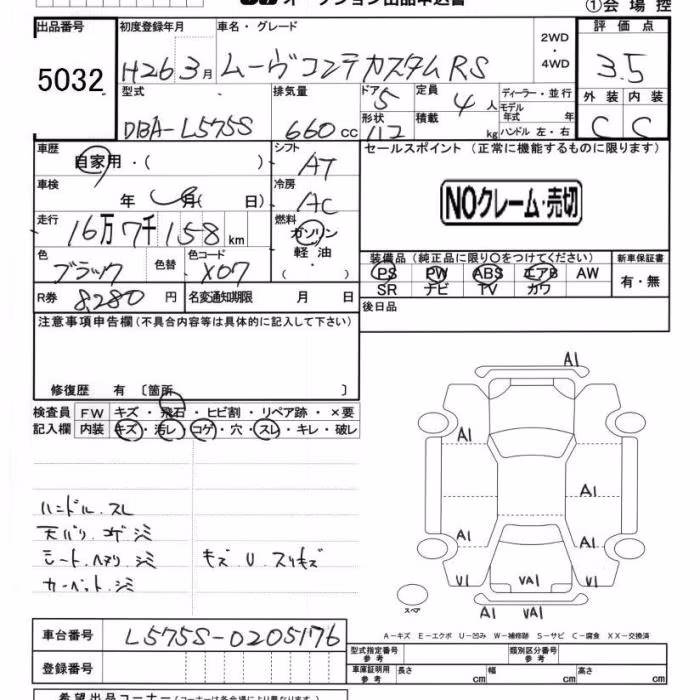 オークション出品申込書
①会場控
出品番号
5032
初度登録年月
H26 3月
車名・グレード
ムーヴコンテカスタムRS
2WD
・
4WD
評価点
3.5
型式
DBA-L575S
排気量
660cc
ドア
5
形状
112
定員
4人
積載
kg
ディーラー・並行
モデル
年式 年
ハンドル 左・右
外装 内装
C C
車歴
自家用・( )
シフト
AT
セールスポイント(正常に機能するものに限ります)
NOクレーム・売切
車検
年 月( 日)
冷房
AC
走行
16万7千158km
燃料
ガソリン
軽油
( ・ )
色
ブラック
色替
色コード
X07
装備品(純正品に限り○をつけてください)
新車保証書
PS PW ABS エアB AW
SR ナビ TV カワ
有・無
R券
8,280円
名変通知期限 月 日
後日品
注意事項申告欄(不具合内容等は具体的に記入して下さい)
修復歴 有〔箇所 〕
検査員
記入欄
FW キズ・飛石・ヒビ割・リペア跡・×要
内装 キズ・汚レ・コゲ・穴・スレ・キレ・破レ
ハンドル.スレ
天バリ.コゲシミ
シート.ヘタリ.シミ
カーペット.シミ
キズ.U.スリキズ
A1
A1
A1
A1
A1
V1
VA1
V1
A1 VA1
スペア
A-キズ E-エクボ U-凹み W-補修跡 S-サビ C-腐食 XX-交換済
車台番号
L575S-0205176
登録番号
型式指定番号
参考
類別区分番号
参考
車庫証明用
参考
長さ cm 幅 cm 高さ cm
希望出品コーナー(コーナーは各会場により異なります)